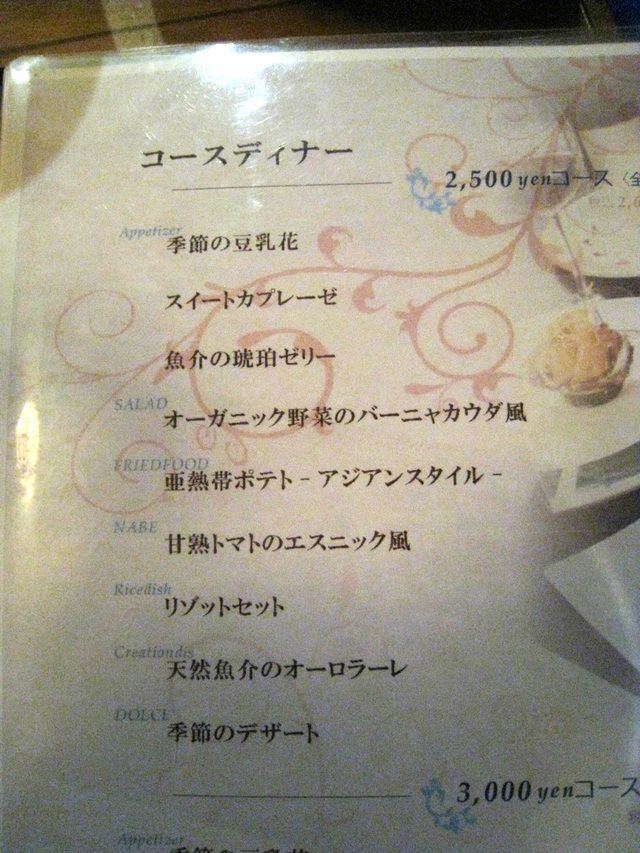 コースディナー
2,500 yenコース〈全
Appetizer
季節の豆乳花
スイートカプレーゼ
魚介の琥珀ゼリー
SALAD
オーガニック野菜のバーニャカウダ風
FRIEDFOOD
亜熱帯ポテト - アジアンスタイル -
NABE
甘熟トマトのエスニック風
Ricedish
リゾットセット
Creationdis
天然魚介のオーロラーレ
DOLCE
季節のデザート
3,000 yenコース
Appetizer
季節の豆乳花